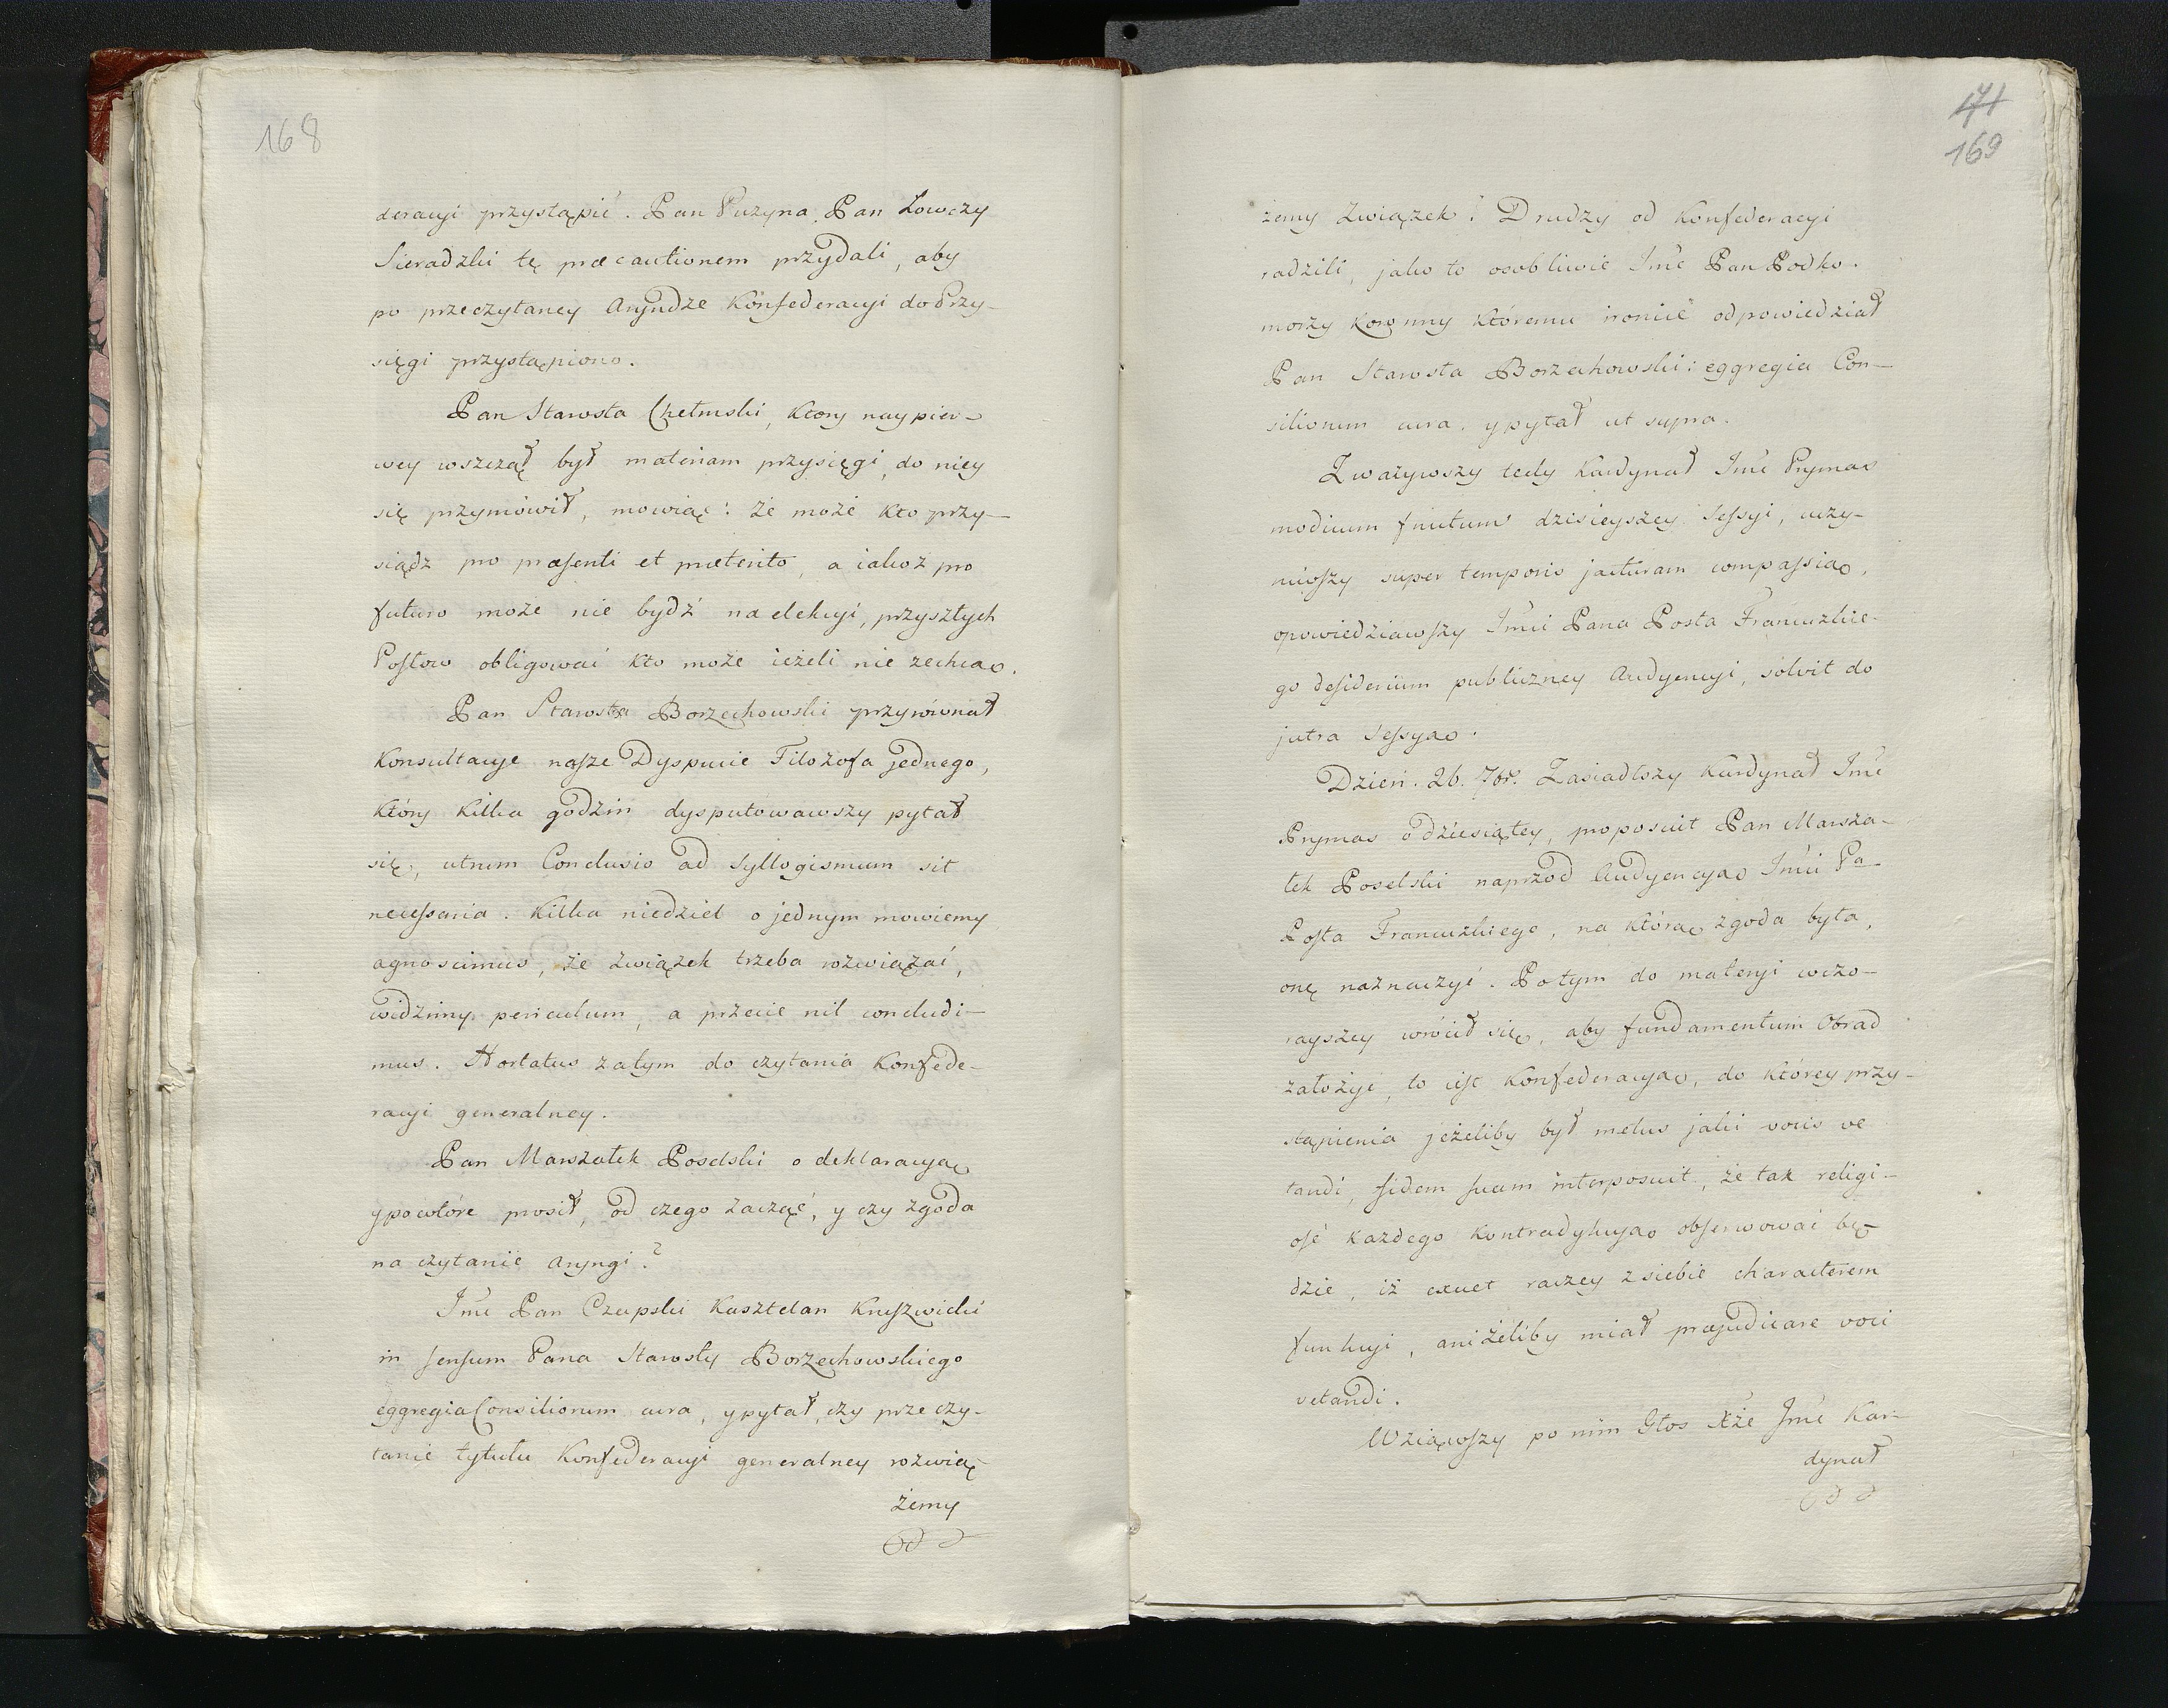 168
deracyi przystąpić. Pan Puzyna, Pan Łowczy
Sieradzki tę præcautionem przydali, aby
po przeczytaney Aryndze Konfederacyi do Przy-
sięgi przystąpiono.
Pan Starosta Chełmski, ktory naypier-
wey wszczął był materiam przysięgi, do niey
się przymówił, mowiąc: że może kto przy-
siądz pro præsenti et præterito, a iakoż pro
futuro może nie bydź na elekcyi, przyszłych
Posłow obligować kto może ieżeli nie zechcą.
Pan Starosta Borzechowski przyrównał
Konsultacye nasze Dyspucie Filozofa jednego,
który kilka godzin dysputowawszy pytał
się, utrum Conclusio ad Syllogismum sit
necessaria. Kilka niedziel o jednym mowiemy
agnoscimus, że związek trzeba rozwiązać,
widzimy periculum, a przecie nil concludi-
mus. Hortatus zatym do czytania Konfede-
racyi generalney.
Pan Marszałek Poselski o deklaracyą
ypowtóre prosił, od czego zacząć, y czy zgoda
na czytanie Aryngi?
Jmć Pan Czapski Kasztelan Kruszwicki
in sensum Pana Starosty Borzechowskiego
eggregia Consiliorum cura, ypytał, czy przeczy-
tanie tytułu Konfederacyi generalney rozwią-
żemy
71
169
żemy Związek? Drudzy od Konfederacyi
radzili, jako to osobliwie Jmć Pan Podko-
morzy Koronny któremu ironicè odpowiedział
Pan Starosta Borzechowski: eggregia Con-
siliorum cura, ypytał ut supra.
Zważywszy tedy Kardynał Jmć Prymas
modicum fructum dzisieyszey Sessyi, uczy-
niwszy super temporis jacturam compassią,
opowiedziawszy Jmci Pana Posła Francuzkie-
go desiderium publiczney Audyencyi, solvit do
jutra Sessyą.
Dzień. 26. 7br. Zasiadłszy Kardynał Jmć
Prymas o dziesiątey, proposuit Pan Marsza-
łek Poselski naprzod Audyencyą Jmci Pa-
Posła Francuzkiego, na którą zgoda była,
onę naznaczyć. Potym do materyi wczo-
rayszey wrócił się, aby fundamentum Obrad
założyć, to iest Konfederacyą, do którey przy-
stąpienia jeżeliby był metus jaki vocis ve
tandi, fidem suam interposuit, że tak religi-
osè każdego Kontradykcyą obserwować bę-
dzie, iż exuet raczey z siebie characterem
funkcyi, aniżeliby miał præjudicare voci
vetandi.
Wziąwszy po nim Głos Xże Jmć Kar-
dynał